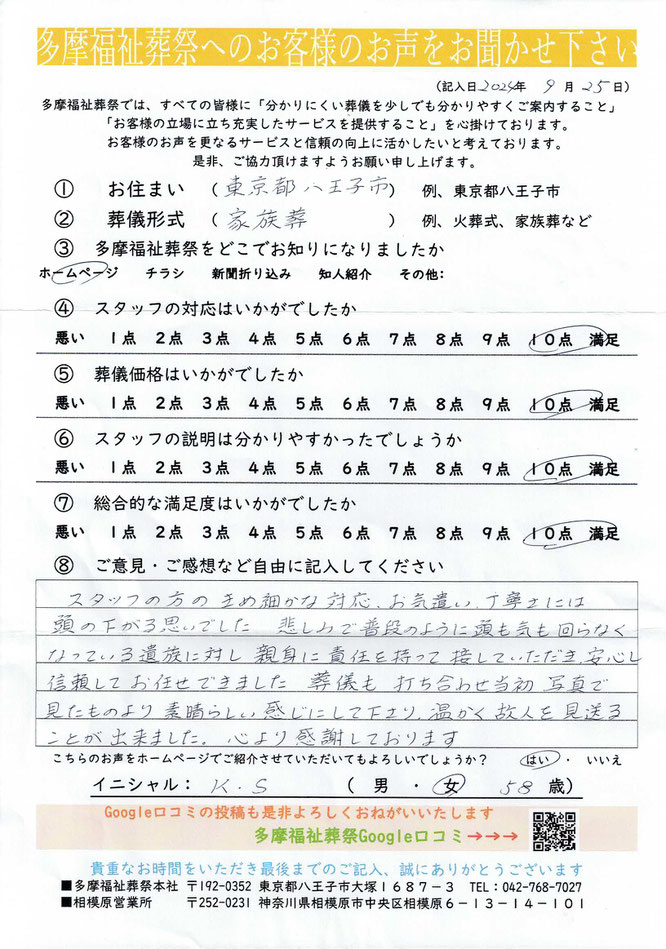 多摩福祉葬祭へのお客様のお声をお聞かせ下さい
（記入日2024年 9 月 25日）
多摩福祉葬祭では、すべての皆様に「分かりにくい葬儀を少しでも分かりやすくご案内すること」
「お客様の立場に立ち充実したサービスを提供すること」を心掛けております。
お客様のお声を更なるサービスと信頼の向上に活かしたいと考えております。
是非、ご協力頂けますようお願い申し上げます。
① お住まい （東京都八王子市） 例、東京都八王子市
② 葬儀形式 （家族葬） 例、火葬式、家族葬など
③ 多摩福祉葬祭をどこでお知りになりましたか
ホームページ チラシ 新聞折り込み 知人紹介 その他：
④ スタッフの対応はいかがでしたか
悪い １点 ２点 ３点 ４点 ５点 ６点 ７点 ８点 ９点 １０点 満足
⑤ 葬儀価格はいかがでしたか
悪い １点 ２点 ３点 ４点 ５点 ６点 ７点 ８点 ９点 １０点 満足
⑥ スタッフの説明は分かりやすかったでしょうか
悪い １点 ２点 ３点 ４点 ５点 ６点 ７点 ８点 ９点 １０点 満足
⑦ 総合的な満足度はいかがでしたか
悪い １点 ２点 ３点 ４点 ５点 ６点 ７点 ８点 ９点 １０点 満足
⑧ ご意見・ご感想など自由に記入してください
スタッフの方のきめ細かな対応、お気遣い、丁寧さには
頭の下がる思いでした 悲しみで普段のように頭も気も回らなく
なっている遺族に対し 親身に責任を持って 接していただき、安心し
信頼して お任せできました 葬儀も 打ち合わせ当初 写真で
見たものより 素晴らしい感じにして下さり、温かく故人を見送る
ことが出来ました。心より感謝しております
こちらのお声をホームページでご紹介させていただいてもよろしいでしょうか？ はい ・ いいえ
イニシャル： K.S （ 男 ・ 女 58 歳）
Google口コミの投稿も是非よろしくおねがいいたします
多摩福祉葬祭Google口コミ→→→
貴重なお時間をいただき最後までのご記入、誠にありがとうございます
■多摩福祉葬祭本社 〒192-0352 東京都八王子市大塚１６８７－３ TEL：042-768-7027
■相模原営業所 〒252-0231 神奈川県相模原市中央区相模原６－１３－１４－１０１